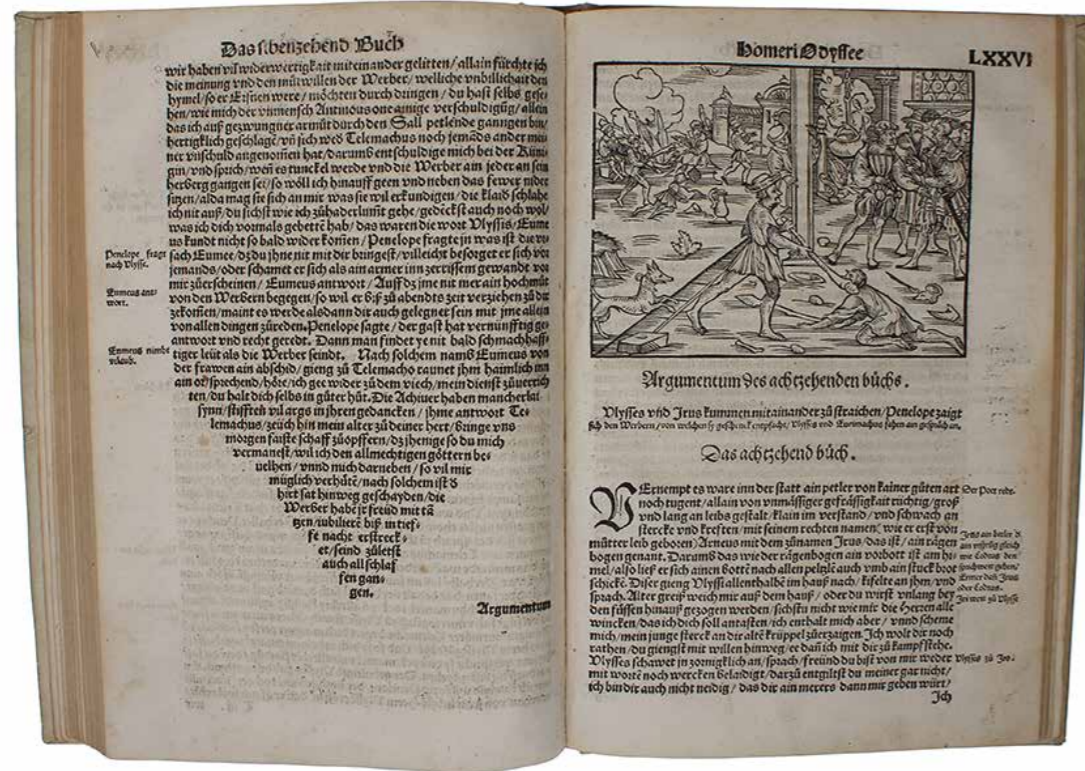 Das sibenzehend Buch
wir haben vil widerwertigkait miteinander gelitten/ allain fürchte ich
die meinung vnd den mütwillen der Werber/ welliche vnbillichait den
hymel/ so er Eisnen were/ möchten durch dringen/ du hast selbs gese-
hen/ wie mich der vnmensch Antinous one ainige verschuldigūg/ allein
das ich auß gezwungner armüt durch den Sall petlende ganngen bin/
hertigklich geschlagē/ vn̄ sich wed̄ Telemachus noch jemāds ander mei-
ner vnschuld angenom̄en hat/ darumb entschuldige mich bei der Küni-
gin/ vnd sprich/ wen̄ es tunckel werde vnd die Werber ain jeder an sein
herberg gangen sei/ so wöll ich hinauff geen vnd neben das fewer nider
sitzen/ alda mag sie sich an mir was sie wil erkundigen/ die klaid schlahe
ich nit auß/ du sichst wie ich zühaderlumt gehe/ gedēckst auch noch wol/
was ich dich vormals gebettē hab/ das waren die wort Vlyssis/ Eume
us kundt nicht so bald wider kom̄en/ Penelope fragte jn was ist die vr-
sach Eumee/ dz du jhne nit mit dir bringest/ villeicht besorget er sich vor
jemands/ oder schamet er sich als ain armer inn zerrissem gewandt vor
mir züerscheinen/ Eumeus antwort/ Auff dz jme nit mer ain hochmüt
von den Werbern begegen/ so wil er biß zü abendts zeit verziehen zü dir
zekom̄en/ maint es werde alsdann dir auch gelegner sein mit jme allein
von allen dingen züreden. Penelope sagte/ der gast hat vernünfftig ge-
antwort vnd recht geredt. Dann man findet ye nit bald schmachhaff-
tiger leüt als die Werber seindt. Nach solchem namb Eumeus von
der frawen ain abschid/ gieng zü Telemacho raunet jhm haimlich inn
ain or/ sprechend/ höre/ ich gee wider zü dem viech/ mein dienst züuerrich
ten/ du halt dich selbs in güter hüt. Die Achiuer haben mancherlai
synn/ stifften vil args in jhren gedancken/ jhme antwort Te-
lemachus/ zeüch hin mein alter zü deiner hert/ bringe vns
morgen faiste schaff züopffern/ dz jhenige so du mich
vermanest/ wil ich den allmechtigen göttern be-
uelhen/ vnnd mich darneben/ so vil mir
müglich verhütē/ nach solchem ist d̄
hirt sat hinweg geschayden/ die
Werber habē jr freüd mit tā
tzen/ iubilierē biß in tief-
fe nacht erstreck-
et/ seind zületst
auch all schlaf
fen gan-
gen.
Argumentum
Penelope fragt
nach Vlysse.
Eumeus ant-
wort.
Eumeus nimbt
vrlaub.
Homeri Odyssee
LXXVI
Argumentum des achtzehenden büchs.
Vlysses vnd Irus kummen mit ainander zü straichen/ Penelope zaigt
sich den Werbern/ von wölchen sy geschenck entpfacht/ Vlysses vnd Eurimachus fahen ain gespräch an.
Das achtzehend büch.
VErnempt es ware inn der statt ain petler von kainer güten art
noch tugent/ allain von vnmässiger gefrässigkait rüchtig/ groß
vnd lang an leibs gestalt/ klain im verstand/ vnd schwach an
stercke vnd krefften/ mit seinem rechten namen (wie er erst von
mütter leib geboren) Arneus mit dem zünamen Irus/ das ist/ ain rägen
bogen genant. Darumb das wie der rägenbogen ain vorbott ist am hi-
mel/ also ließ er sich ainen bottē nach allen petzlē auch vmb ain stuck brot
schickē. Diser gieng Vlyssi allenthalbē im hauß nach/ kifelte an jhm/ vnd
sprach. Alter greiß weich mir auß dem hauß/ oder du wirst vnlang bey
den füssen hinauß gezogen werden/ sichstu nicht wie mir die Herren alle
wincken/ das ich dich soll antasten/ ich enthalt mich aber/ vnnd scheme
mich/ mein junge sterck an dir altē krüppel züerzaigen. Ich wolt dir noch
rathen/ du giengst mit willen hinweg/ ee dan̄ ich mit dir zü kampf stehe.
Vlysses schawet jn zornigklich an/ sprach/ freünd du bist von mir weder
mit wortē noch wercken belaidigt/ darzü entgiltst du meiner gar nicht/
ich bin dir auch nicht neidig/ das dir ain merers dann mir geben würt/
Ich
Der Poet rede.
Irus ain betler
Codrus
sprichwort geben/
Ermer dan̄ Irus
oder Codrus.
Irus zü Vlysse
Vlysses zü Iro.